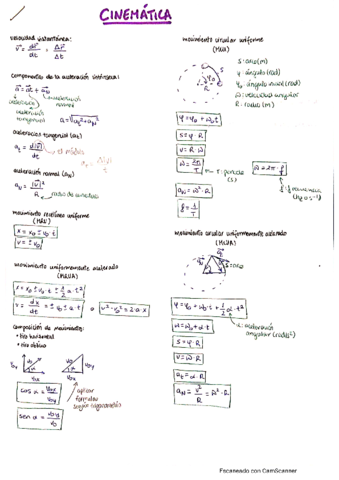 CINEMÁTICA
velocidad instantánea:
v = dr/dt = Δr/Δt
componentes de la aceleración instantánea:
a = at + aN
aceleración
aceleración tangencial
aceleración normal
a = √(at² + aN²)
aceleración tangencial (at)
at = d|v|/dt → el módulo
aceleración normal (aN)
aN = |v|²/R → radio de curvatura
movimiento rectilíneo uniforme
(MRU)
x = x₀ ± v₀ · t
v = ± v₀
movimiento uniformemente acelerado
(MRUA)
x = x₀ ± v₀ · t ± 1/2 a · t²
v = dx/dt = ± v₀ ± a · t o v² - v₀² = 2·a·x
composición de movimientos:
• tiro horizontal
• tiro oblicuo
v₀y v₀ v₀x
v₀ v₀y v₀x
cos α = v₀x/v₀
sen α = v₀y/v₀
aplicar fórmulas según trigonometría
movimiento circular uniforme
(MCU)
s = arco (m)
φ = ángulo (rad)
φ₀ = ángulo inicial (rad)
ω = velocidad angular
R = radio (m)
φ = φ₀ + ω₀ t
s = φ · R
v = R · ω
ω = 2π/T → T = periodo (s)
ω = 2π · f
f = frecuencia (Hz o s⁻¹)
aN = ω² · R
f = 1/T
movimiento circular uniformemente acelerado
(MCUA)
s = arco
φ = φ₀ + ω₀ · t + 1/2 α · t²
ω = ω₀ + α t
α: aceleración angular (rad/s²)
s = φ · R
v = ω · R
at = α · R
aN = v²/R = ω² · R
Escaneado con CamScanner